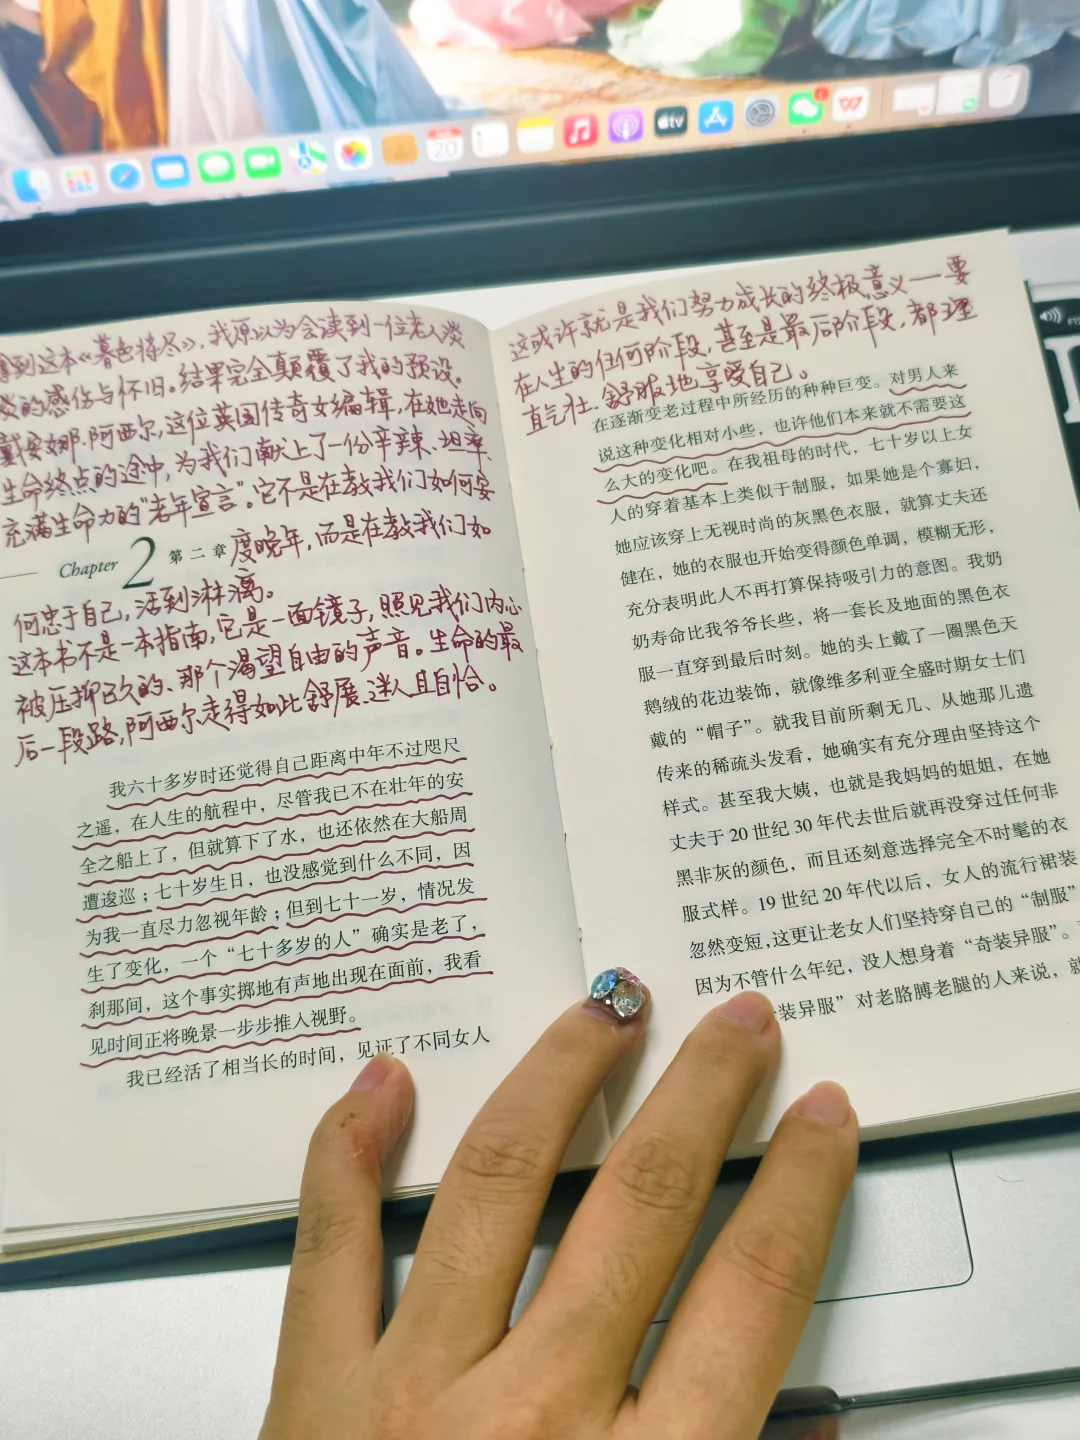 20
tv
到这本《暮色将尽》，我原以为会读到一位老人淡
淡的感伤与怀旧。结果完全颠覆了我的预设。
戴安娜·阿西尔，这位英国传奇女编辑，在她走向
生命终点的途中，为我们献上了一份辛辣、坦率、
充满生命力的“老年宣言”。它不是在教我们如何安
Chapter 2 第二章
度晚年，而是在教我们如
何忠于自己，活到淋漓。
这本书不是一本指南，它是一面镜子，照见我们内心
被压抑已久的、那个渴望自由的声音。生命的最
后一段路，阿西尔走得如此舒展、迷人且自恰。
我六十多岁时还觉得自己距离中年不过咫尺
之遥，在人生的航程中，尽管我已不在壮年的安
全之船上了，但就算下了水，也还依然在大船周
遭逡巡；七十岁生日，也没感觉到什么不同，因
为我一直尽力忽视年龄；但到七十一岁，情况发
生了变化，一个“七十多岁的人”确实是老了，
刹那间，这个事实掷地有声地出现在面前，我看
见时间正将晚景一步步推入视野。
我已经活了相当长的时间，见证了不同女人
这或许就是我们努力成长的终极意义——要
在人生的任何阶段，甚至是最后阶段，都理
直气壮、舒服地享受自己。
在逐渐变老过程中所经历的种种巨变。对男人来
说这种变化相对小些，也许他们本来就不需要这
么大的变化吧。在我祖母的时代，七十岁以上女
人的穿着基本上类似于制服，如果她是个寡妇，
她应该穿上无视时尚的灰黑色衣服，就算丈夫还
健在，她的衣服也开始变得颜色单调，模糊无形，
充分表明此人不再打算保持吸引力的意图。我奶
奶寿命比我爷爷长些，将一套长及地面的黑色衣
服一直穿到最后时刻。她的头上戴了一圈黑色天
鹅绒的花边装饰，就像维多利亚全盛时期女士们
戴的“帽子”。就我目前所剩无几、从她那儿遗
传来的稀疏头发看，她确实有充分理由坚持这个
样式。甚至我大姨，也就是我妈妈的姐姐，在她
丈夫于20世纪30年代去世后就再没穿过任何非
黑非灰的颜色，而且还刻意选择完全不时髦的衣
服式样。19世纪20年代以后，女人的流行裙装
忽然变短，这更让老女人们坚持穿自己的“制服”，
因为不管什么年纪，没人想身着“奇装异服”。
装异服”对老胳膊老腿的人来说，就